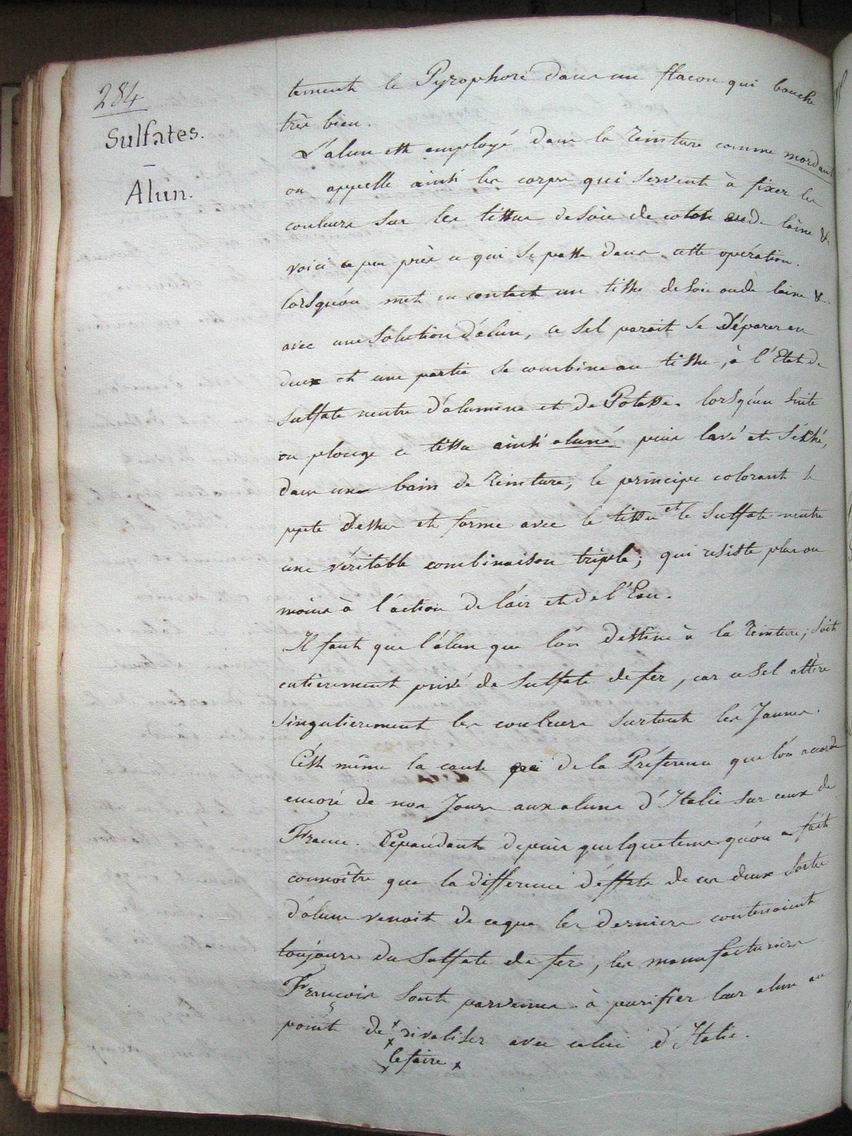 284
Sulfates.
–
Alun.
tement le Pyrophore dans un flacon qui bouche
très bien.
L'alun est employé dans la Teinture comme mordant
on appelle ainsi les corps qui servent à fixer les
couleurs sur les tissus de soie de coton ou de laine &
voici a peu près ce qui se passe dans cette opération.
lorsqu'on met en contact un tissu de soie ou de laine &.
avec une solution d'alun, ce sel paroit se séparer en
deux et une partie se combine au tissu, à l'Etat de
sulfate neutre d'alumine et de Potasse. lorsqu'en suite
on plonge ce tissu ainsi aluné puis lavé et séché,
dans un bain de Teinture, le principe colorant se
jette dessus et forme avec le tissu et le sulfate neutre
une véritable combinaison triple, qui resiste plus ou
moins à l'action de l'air et de l'Eau.
Il faut que l'alun que l'on destine à la Teinture, soit
entierement privé de sulfate de fer, car ce sel altère
singulierement les couleurs surtout les Jaunes.
C'est même la cause de la Préference que l'on accorde
encore de nos Jours aux aluns d'Italie sur ceux de
France. Cependant depuis quelque tems qu'on a fait
connoître que la différence d'effets de ces deux sortes
d'alun venoit de ce que les derniers contenaient
toujours du Sulfate de fer, les manufacturiers
François sont parvenus à purifier leur alun au
point de rivaliser avec celui d'Italie.
le faire